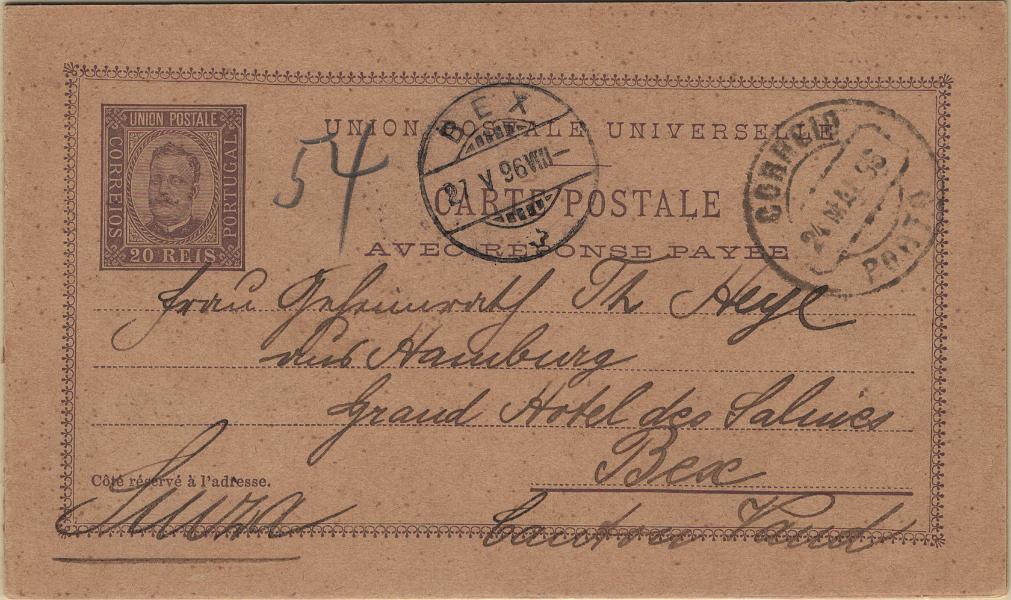 UNION POSTALE UNIVERSELLE
CARTE POSTALE
AVEC RÉPONSE PAYÉE
UNION POSTALE
CORREIOS
PORTUGAL
20 REIS
54
BEX
27 V 96 VIII
CORREIO
24 MAI 96
PORTO
Frau Geheimrath Th Heye
aus Hamburg
Grand Hotel des Salines
Bex
Côté réservé à l'adresse.
Suiza
Canton Vaud